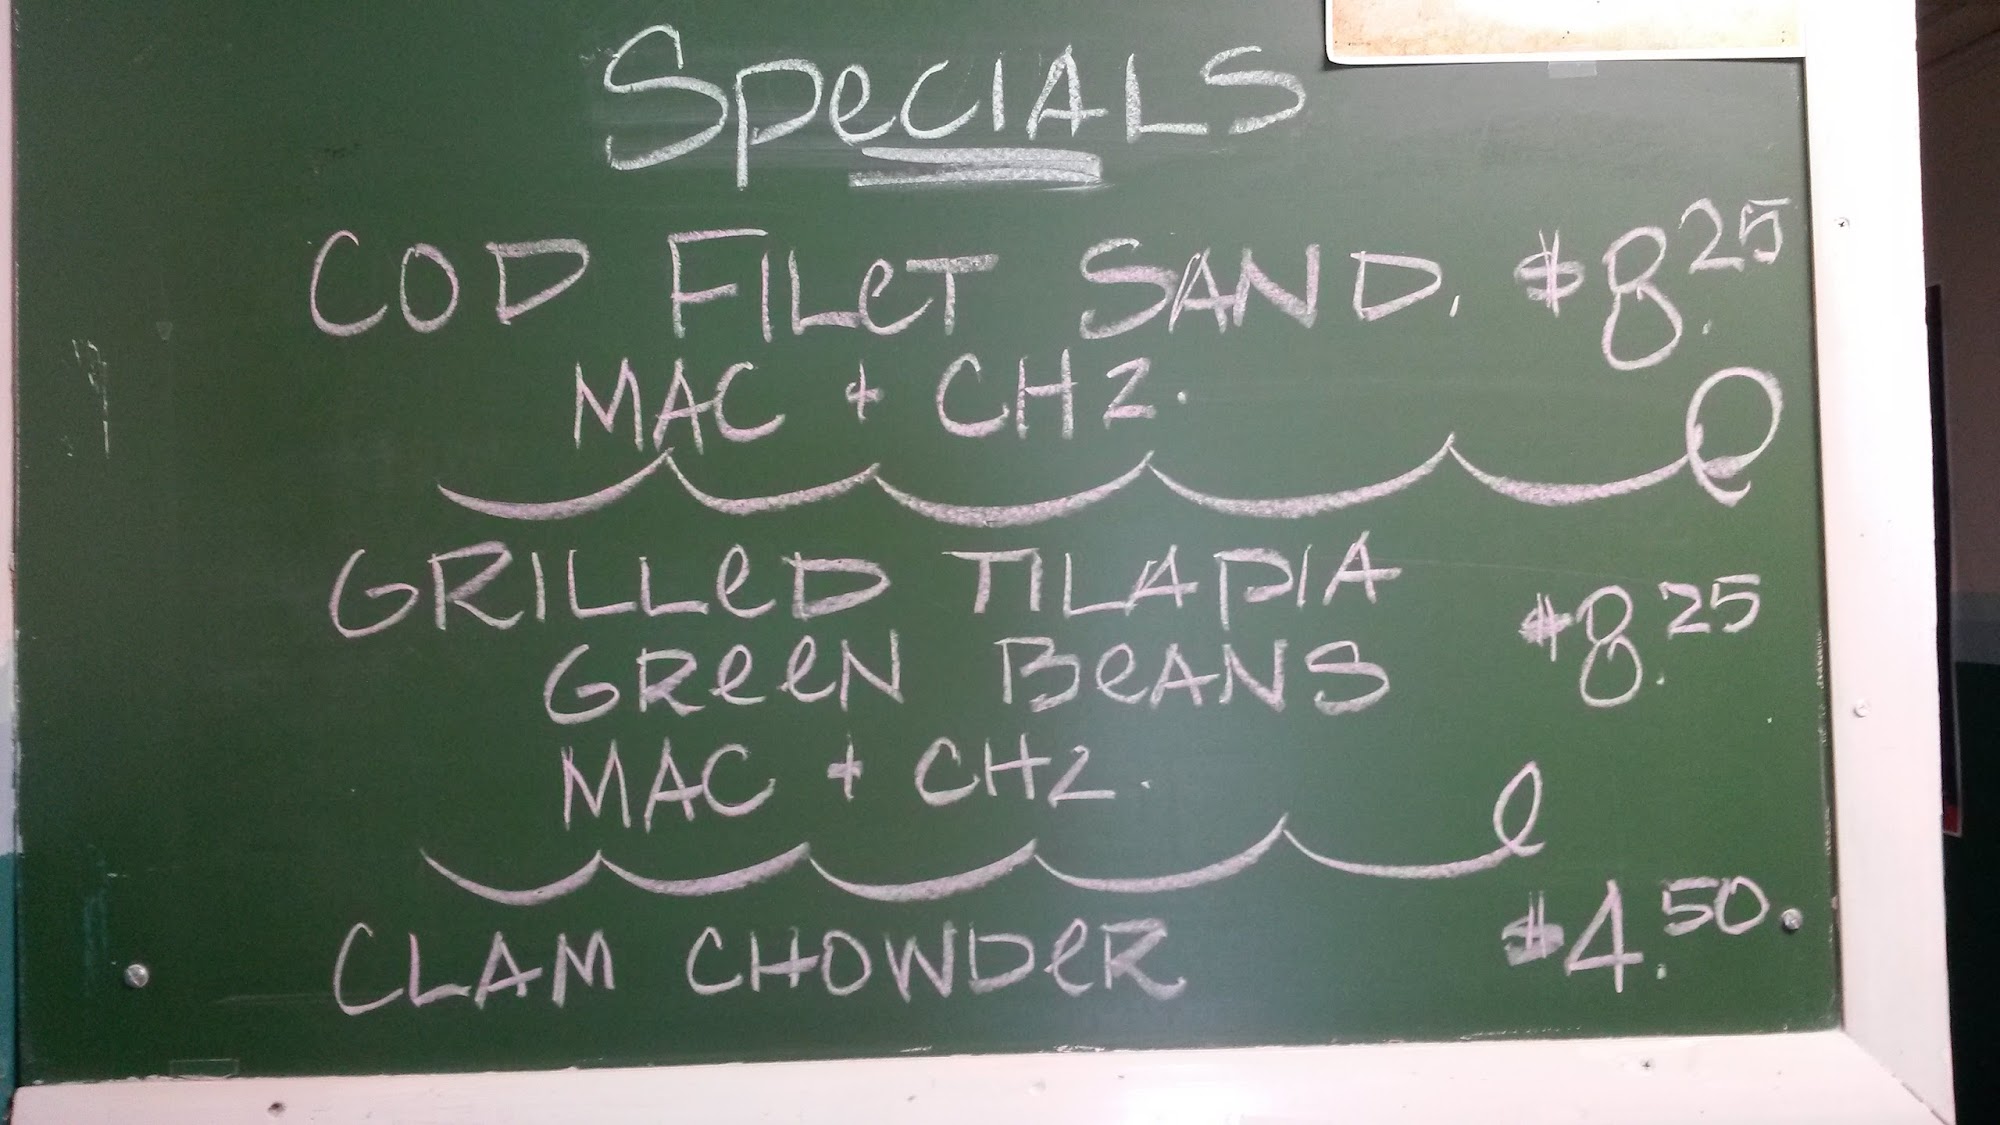 Specials
COD FILET SAND. $8.25
MAC + CHZ.
GRILLED TILAPIA
GREEN BEANS $8.25
MAC + CHZ.
CLAM CHOWDER $4.50